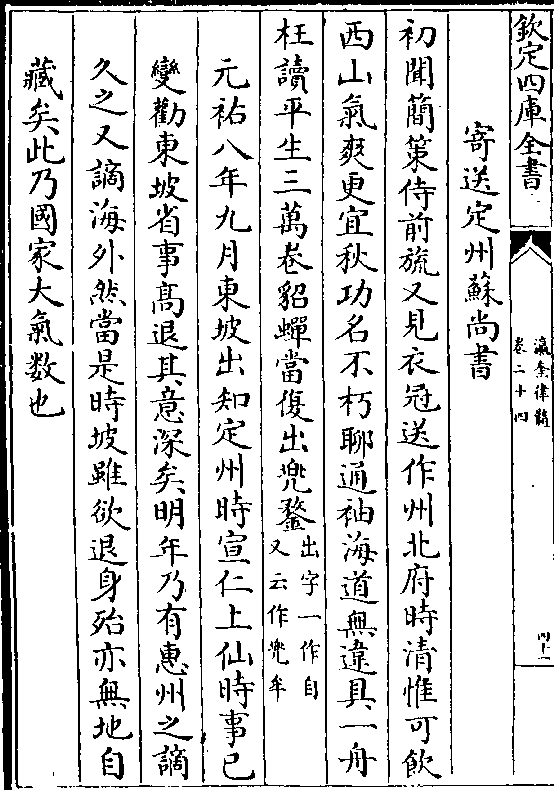 欽定四庫全書
瀛奎律髓
卷二十四
四十一
寄送定州蘇尚書
初聞簡策侍前旒又見衣冠送作州北府時清惟可飲
西山氣爽更宜秋功名不朽聊通袖海道無違具一舟
枉讀平生三萬卷貂蟬當復出兜鍪
出字一作自
又云作兜牟
元祐八年九月東坡出知定州時宣仁上仙時事已
變勸東坡省事髙退其意深矣明年乃有惠州之謫
久之又謫海外然當是時坡雖欲退身殆亦無地自
藏矣此乃國家大氣数也